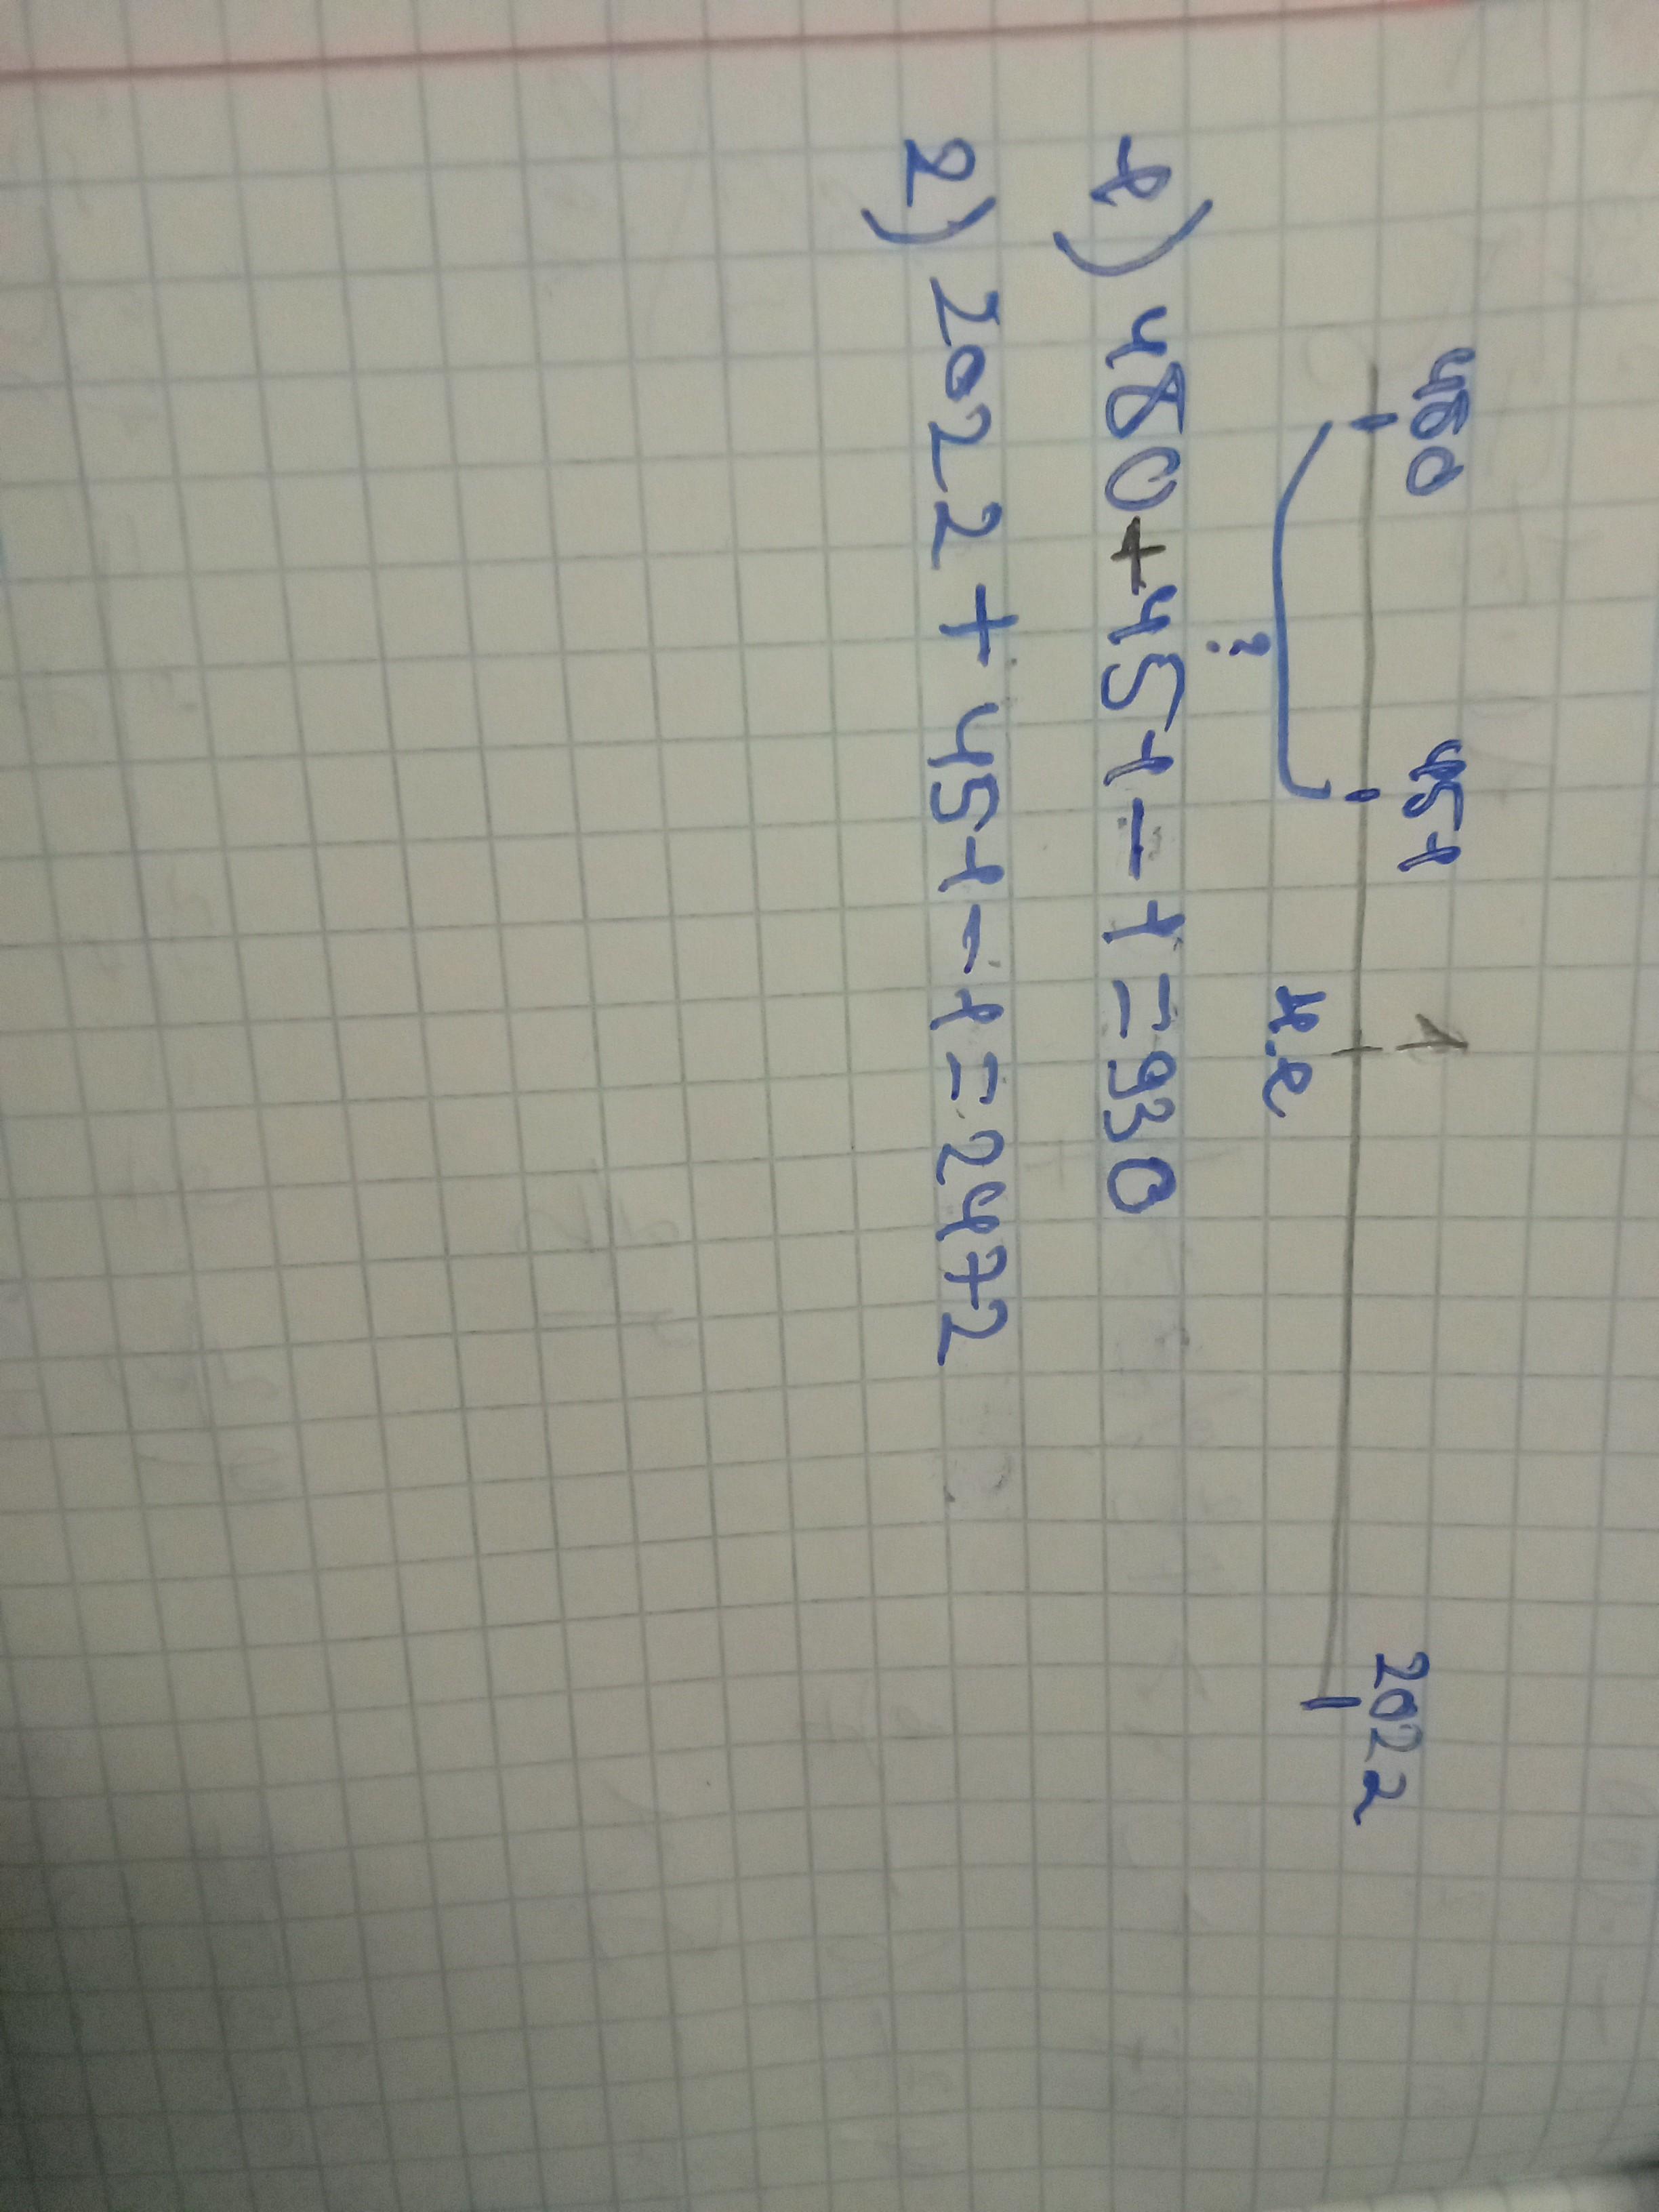 480 451 1 2022
? н.е
1) 480+451-1=930
2) 2022+451-1=2472